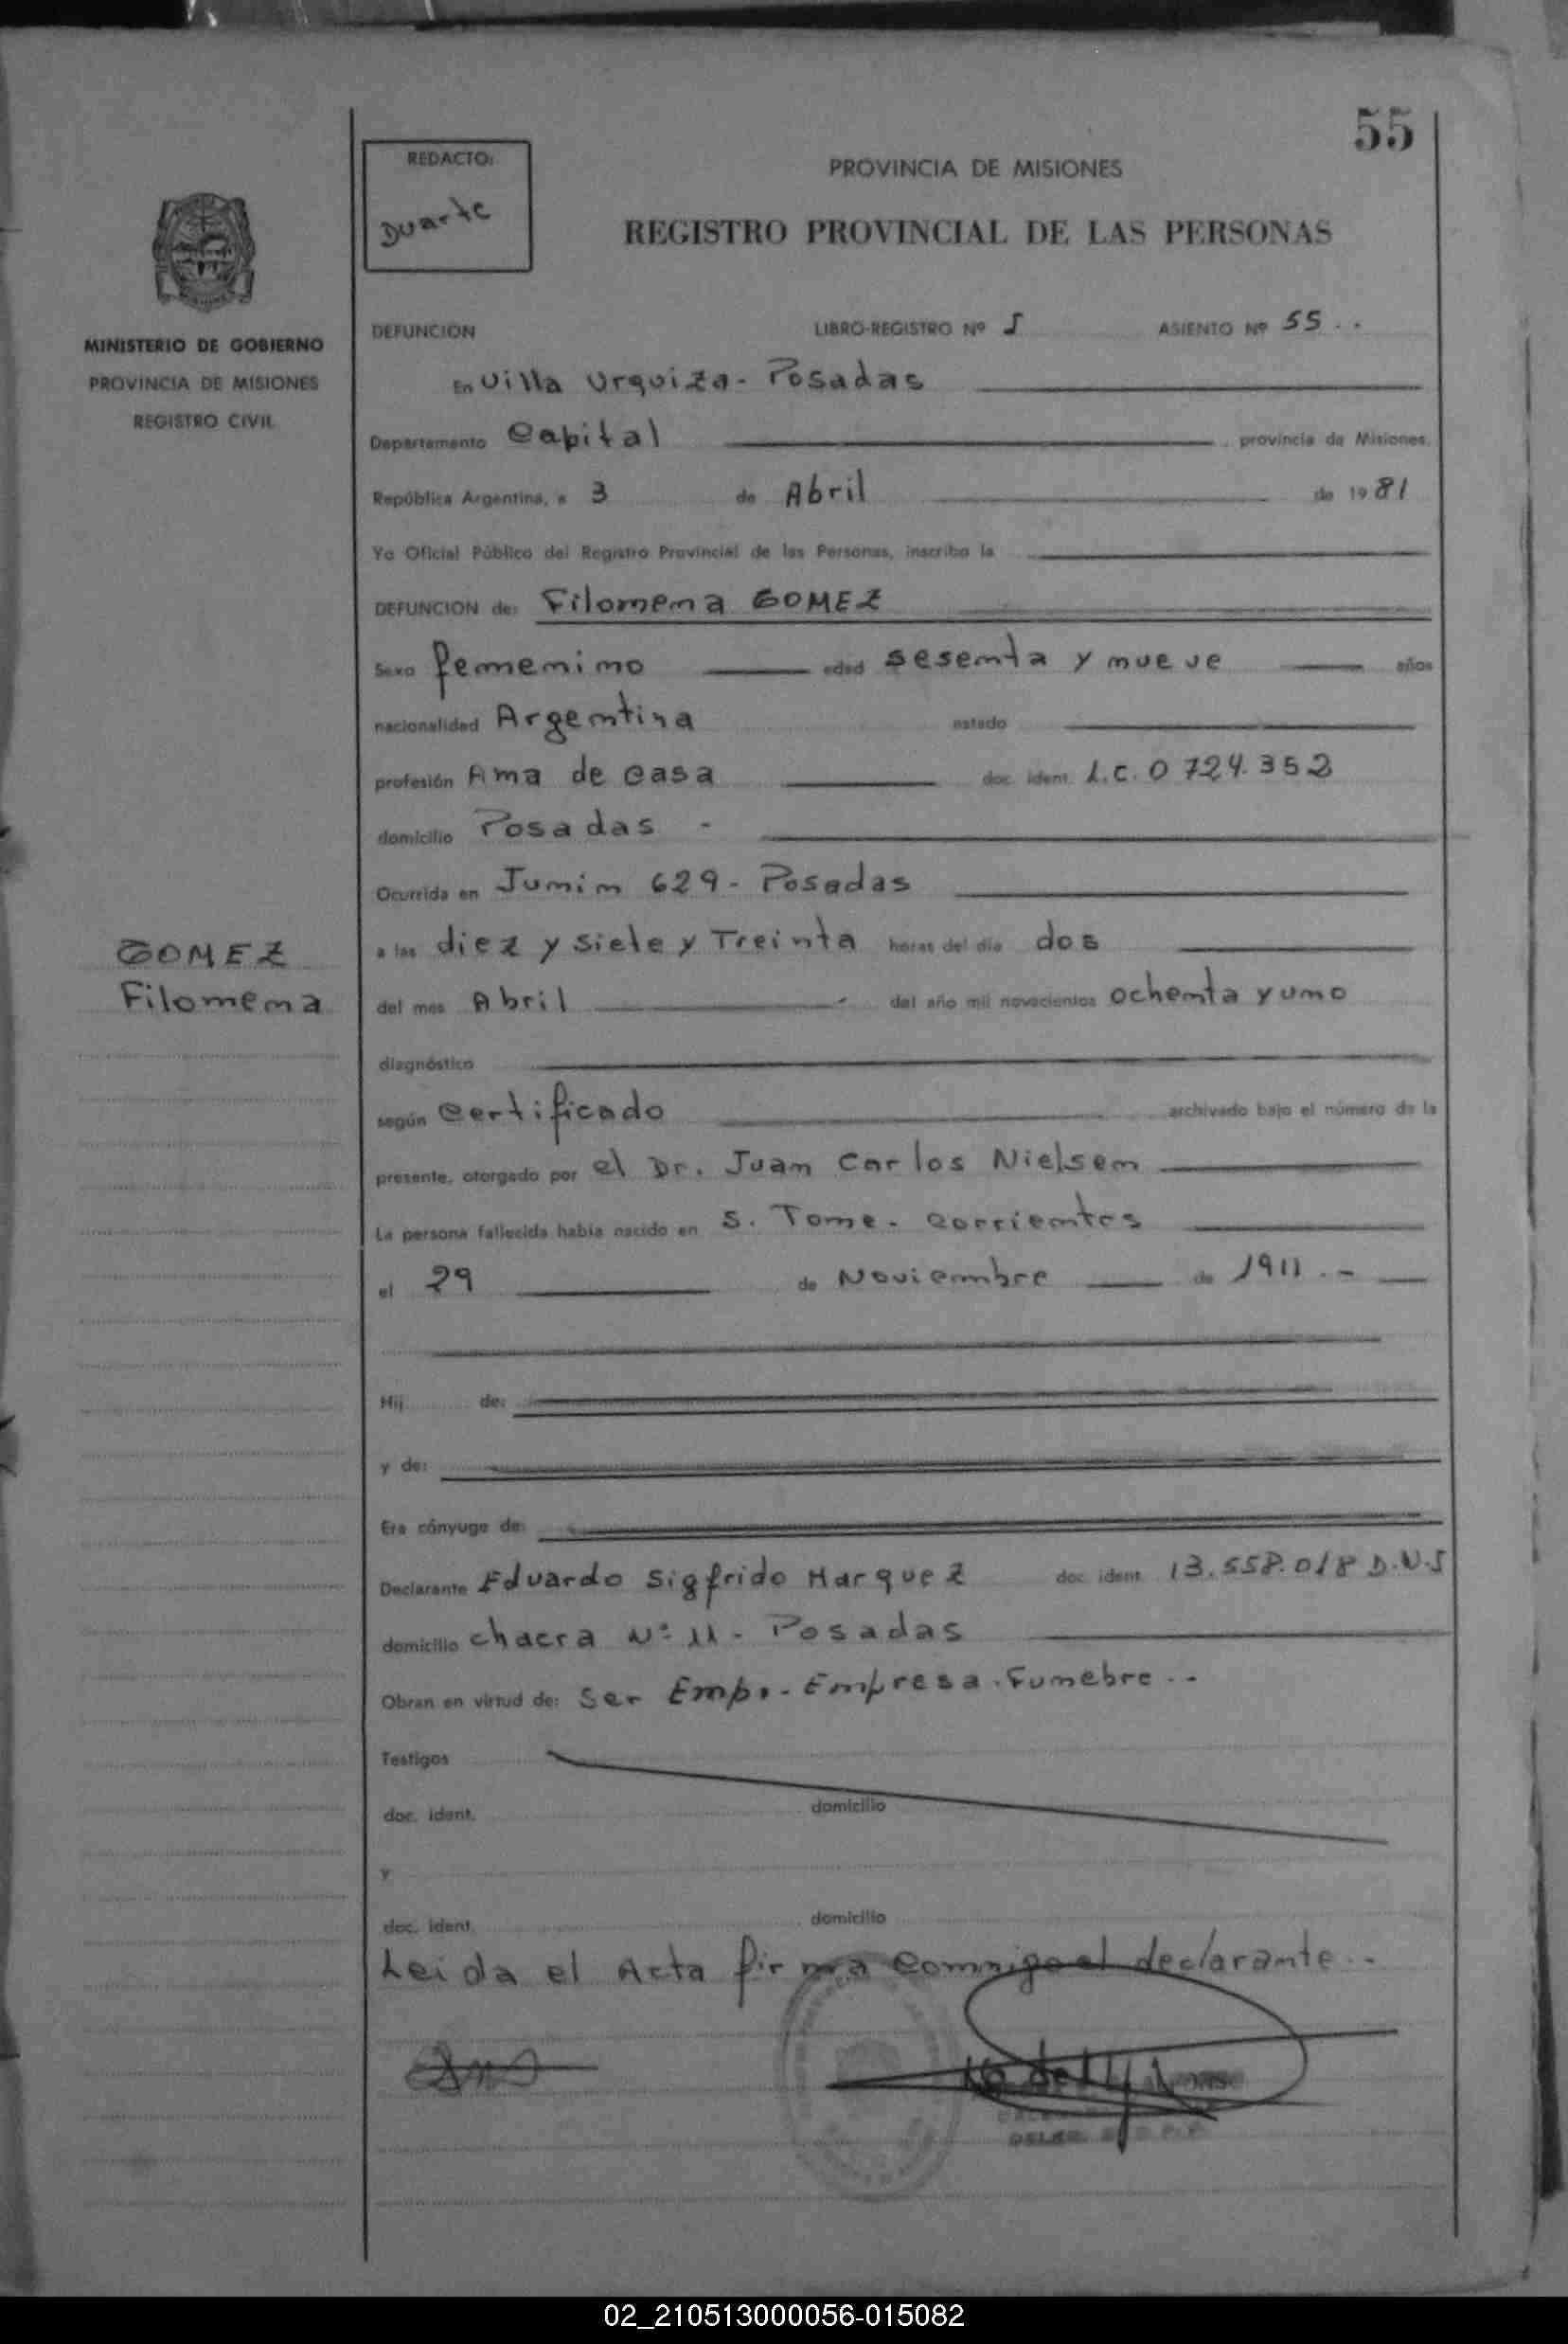 55
REDACTO:
Duarte
PROVINCIA DE MISIONES
REGISTRO PROVINCIAL DE LAS PERSONAS
MINISTERIO DE GOBIERNO
PROVINCIA DE MISIONES
REGISTRO CIVIL
DEFUNCION LIBRO-REGISTRO Nº I ASIENTO Nº 55..
En Villa Urquiza - Posadas
Departamento Capital , provincia de Misiones,
República Argentina, a 3 de Abril de 1981
Yo Oficial Público del Registro Provincial de las Personas, inscribo la
DEFUNCION de: Filomena GOMEZ
Sexo femenino edad sesenta y nueve años
nacionalidad Argentina estado
profesión Ama de casa doc. ident. L.C. 0 724.352
domicilio Posadas -
Ocurrida en Junin 629 - Posadas
a las diez y siete y Treinta horas del día dos
GOMEZ
Filomena
del mes Abril del año mil novecientos ochenta y uno
diagnóstico
según certificado archivado bajo el número de la
presente, otorgado por el Dr. Juan Carlos Nielsen
La persona fallecida había nacido en S. Tome - Corrientes
el 29 de Noviembre de 1911.-
Hij de:
y de:
Era cónyuge de:
Declarante Eduardo Sigfrido Marquez doc. ident. 13.558.018 D.N.I
domicilio chacra Nº 11 - Posadas
Obran en virtud de: Ser Emp. - Empresa. Funebre..
Testigos
doc. ident. domicilio
y
doc. ident. domicilio
Leida el Acta firma conmigo el declarante..
02_210513000056-015082